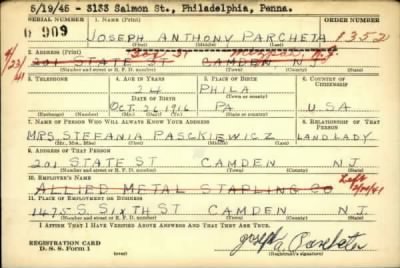 5/19/46 - 3133 Salmon St., Philadelphia, Penna.
SERIAL NUMBER 1. NAME (Print) ORDER NUMBER
909 JOSEPH ANTHONY PARCHETA 1352
(First) (Middle) (Last)
2. ADDRESS (Print)
201 STATE ST CAMDEN, NJ
(Number and street or R. F. D. number) (Town) (County) (State)
3. TELEPHONE 4. AGE IN YEARS 5. PLACE OF BIRTH 6. COUNTRY OF CITIZENSHIP
24 PHILA
DATE OF BIRTH (Town or county)
OCT. 26 1916 PA U.S.A
(Exchange) (No.) (Mo.) (Day) (Yr.) (State or country)
7. NAME OF PERSON WHO WILL ALWAYS KNOW YOUR ADDRESS 8. RELATIONSHIP OF THAT PERSON
MRS. STEFANIA PASCKIEWICZ LANDLADY
(Mr., Mrs., Miss) (First) (Middle) (Last)
9. ADDRESS OF THAT PERSON
201 STATE ST CAMDEN NJ
(Number and street or R. F. D. number) (Town) (County) (State)
10. EMPLOYER'S NAME Left
ALLIED METAL STAPLING CO
11. PLACE OF EMPLOYMENT OR BUSINESS
1475 S. SIXTH ST CAMDEN NJ.
(Number and street or R. F. D. number) (Town) (County) (State)
I AFFIRM THAT I HAVE VERIFIED ABOVE ANSWERS AND THAT THEY ARE TRUE.
REGISTRATION CARD
D. S. S. Form 1
Joseph A. Parcheta
(Registrant's signature)